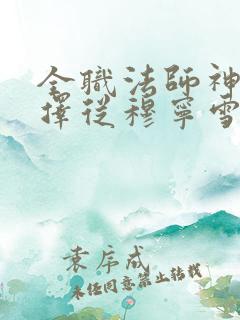 全職法師神
擇從穆寧雪
袁序成
未经同意禁止转载